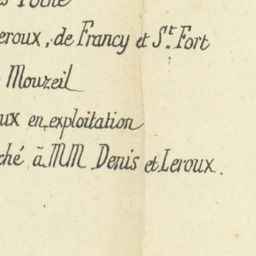 eroux, de Francy et St. Fort
Mouzeil
ux en exploitation
ché à MM Denis et Leroux.